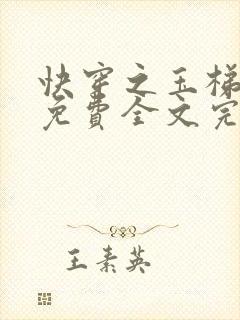 快穿之玉梯
免費全文完
王素英